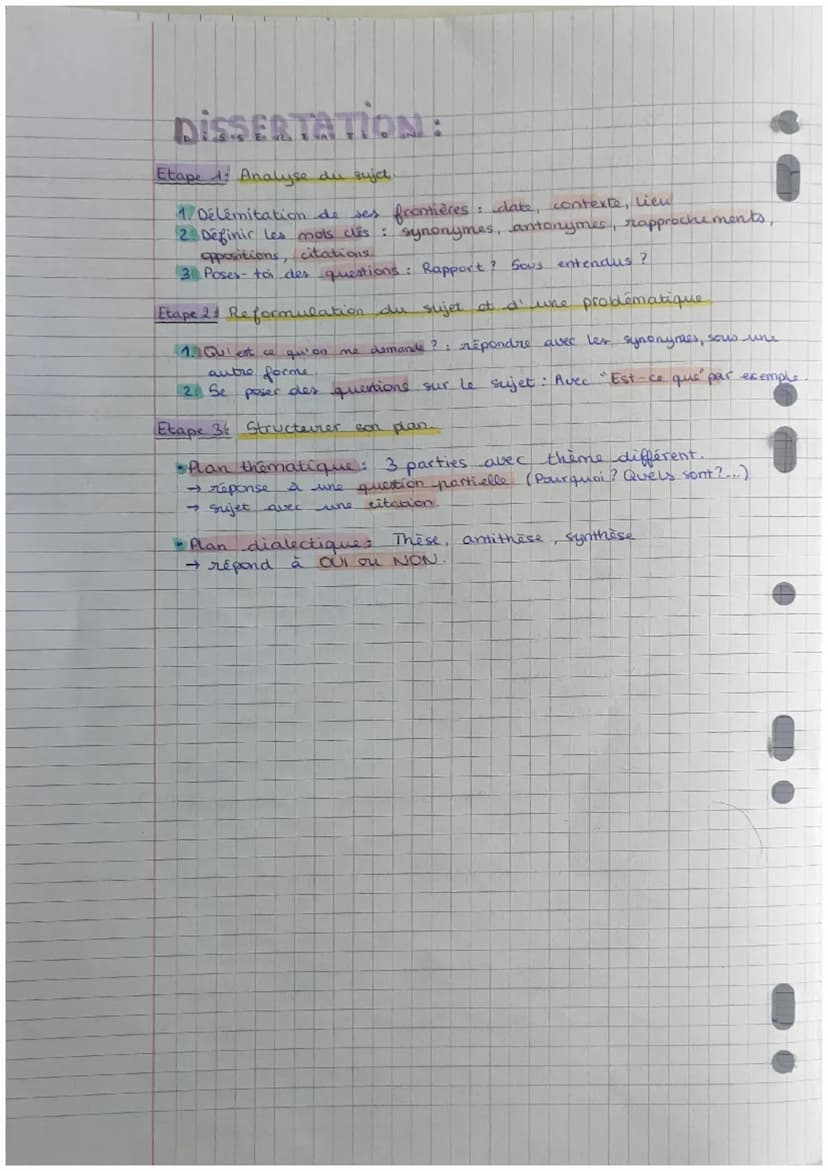 DISSERTATION :
Etape 1: Analyse du sujet.
1. Délémitation de ses frontières : date, contexte, lieu
2. Définir les mots clés : synonymes, antonymes, rapprochements,
oppositions, citations.
3. Poses-toi des questions : Rapport ? Sous entendus ?
Etape 2: Reformulation du sujet et d'une problématique
1. Qu'est ce qu'on me demande ? : répondre avec les synonymes, sous une
autre forme
2. Se poser des questions sur le sujet : Avec "Est-ce que" par exemple.
Etape 3: Structurer son plan.
• Plan thématique : 3 parties avec thème différent.
→ réponse à une question partielle (Pourquoi ? Quels sont ?...)
→ sujet avec une citation
• Plan dialectique : Thèse, antithèse, synthèse
→ répond à OUI ou NON.